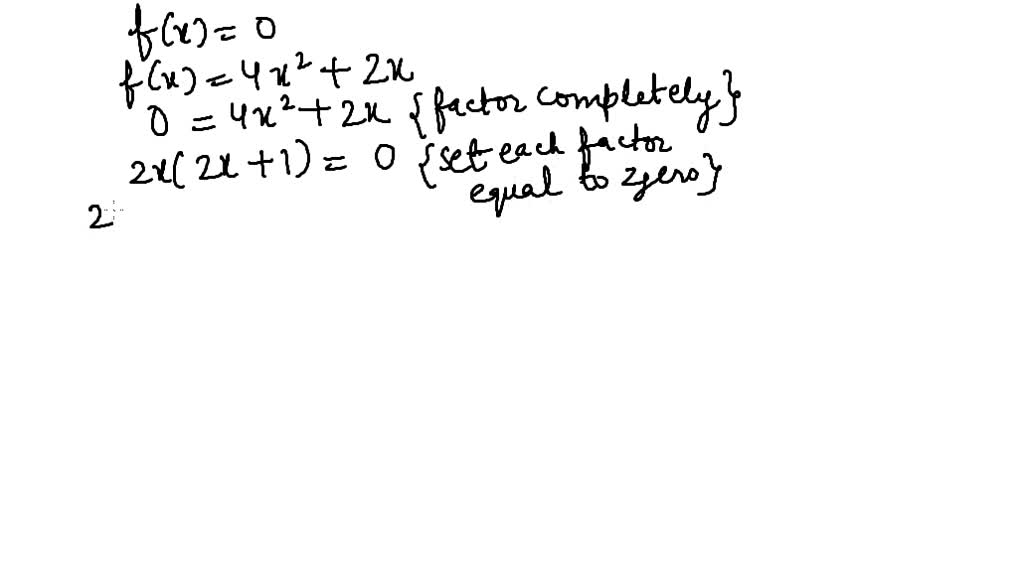 f(x) = 0
f(x) = 4x² + 2x
0 = 4x² + 2x {factor completely}
2x(2x + 1) = 0 {set each factor
equal to zero}
2